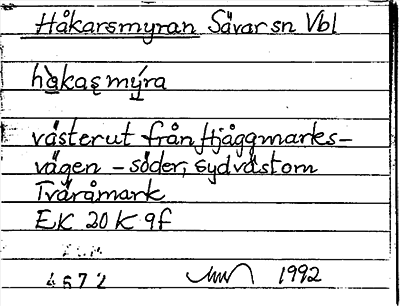 Håkarsmyran Sävar sn Vbl
hàkaʂmýra
västerut från Hjåggmarks-
vägen - söder, sydväst om
Tväråmark
EK 20 K 9f
4672 1992